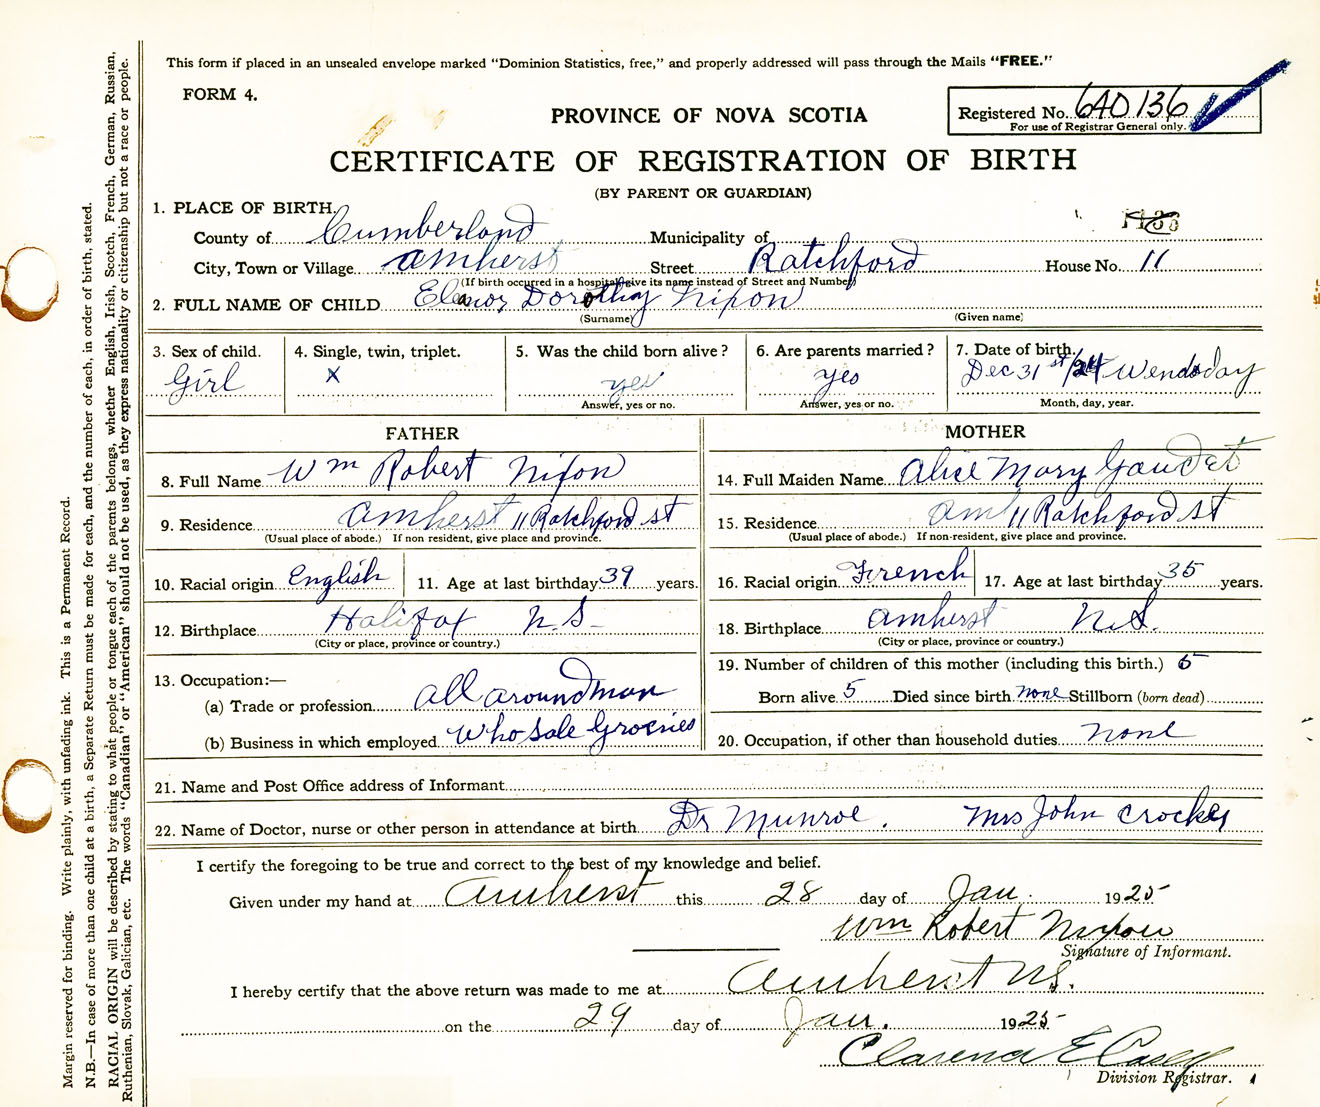 This form if placed in an unsealed envelope marked "Dominion Statistics, free," and properly addressed will pass through the Mails "FREE."
FORM 4.
PROVINCE OF NOVA SCOTIA
Registered No. 640136
For use of Registrar General only.
CERTIFICATE OF REGISTRATION OF BIRTH
(BY PARENT OR GUARDIAN)
1. PLACE OF BIRTH.
County of Cumberland Municipality of
City, Town or Village Amherst Street Ratchford House No. 11
(If birth occurred in a hospital give its name instead of Street and Number)
2. FULL NAME OF CHILD Eleanor Dorothy Nixon
(Surname) (Given name)
3. Sex of child. 4. Single, twin, triplet. 5. Was the child born alive? 6. Are parents married? 7. Date of birth.
Girl X yes yes Dec 31st/24 Wendsday
Answer, yes or no. Answer, yes or no. Month, day, year.
FATHER MOTHER
8. Full Name Wm Robert Nixon 14. Full Maiden Name Alice Mary Gaudet
9. Residence Amherst 11 Ratchford st 15. Residence Am 11 Ratchford St
(Usual place of abode.) If non resident, give place and province. (Usual place of abode.) If non-resident, give place and province.
10. Racial origin English 11. Age at last birthday 39 years. 16. Racial origin French 17. Age at last birthday 35 years.
12. Birthplace Halifax N.S- 18. Birthplace Amherst N.S.
(City or place, province or country.) (City or place, province or country.)
13. Occupation:— 19. Number of children of this mother (including this birth.) 5
(a) Trade or profession all around man Born alive 5 Died since birth none Stillborn (born dead)
(b) Business in which employed Who sale Groceries 20. Occupation, if other than household duties none
21. Name and Post Office address of Informant
22. Name of Doctor, nurse or other person in attendance at birth Dr Munroe. Mrs John Crocker
I certify the foregoing to be true and correct to the best of my knowledge and belief.
Given under my hand at Amherst this 28 day of Jan. 1925
Wm Robert Nixon
Signature of Informant.
I hereby certify that the above return was made to me at Amherst NS.
on the 29 day of Jan. 1925
Clarence E Casey
Division Registrar.
Margin reserved for binding. Write plainly, with unfading ink. This is a Permanent Record.
N.B.—In case of more than one child at a birth, a Separate Return must be made for each, and the number of each, in order of birth, stated.
RACIAL ORIGIN will be described by stating to what people or tongue each of the parents belongs, whether English, Irish, Scotch, French, German, Russian,
Ruthenian, Slovak, Galician, etc. The words "Canadian" or "American" should not be used, as they express nationality or citizenship but not a race or people.